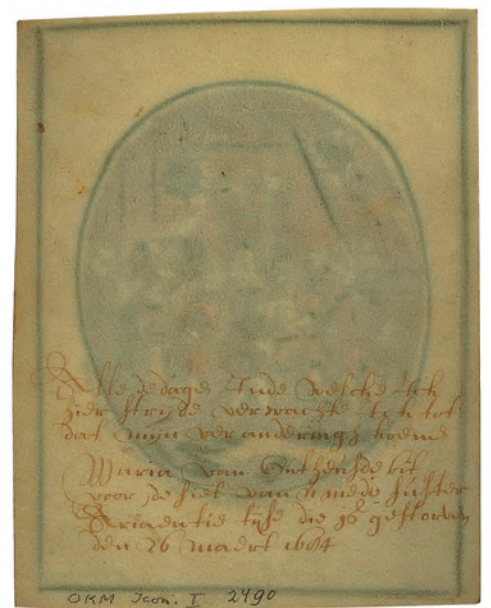 Alle de dage, Inde welcke ick
hier stryde verwachte ick tot
dat mijn veranderinghe koemt
Maria van bit
voor de siel van u mede suster
Ariaentie die is gestorven
den 26 maert 1684
OKM Icon. I 2490